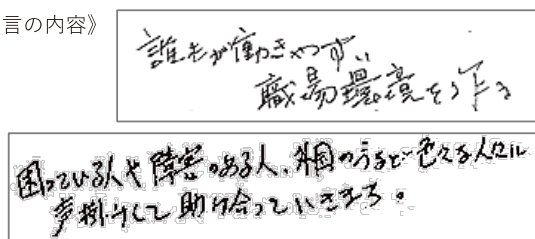 言の内容》
誰もが働きやすい
職場環境を作る
困っている人や障害のある人、外国の方など色々な人に
声掛けして助け合っていきます。